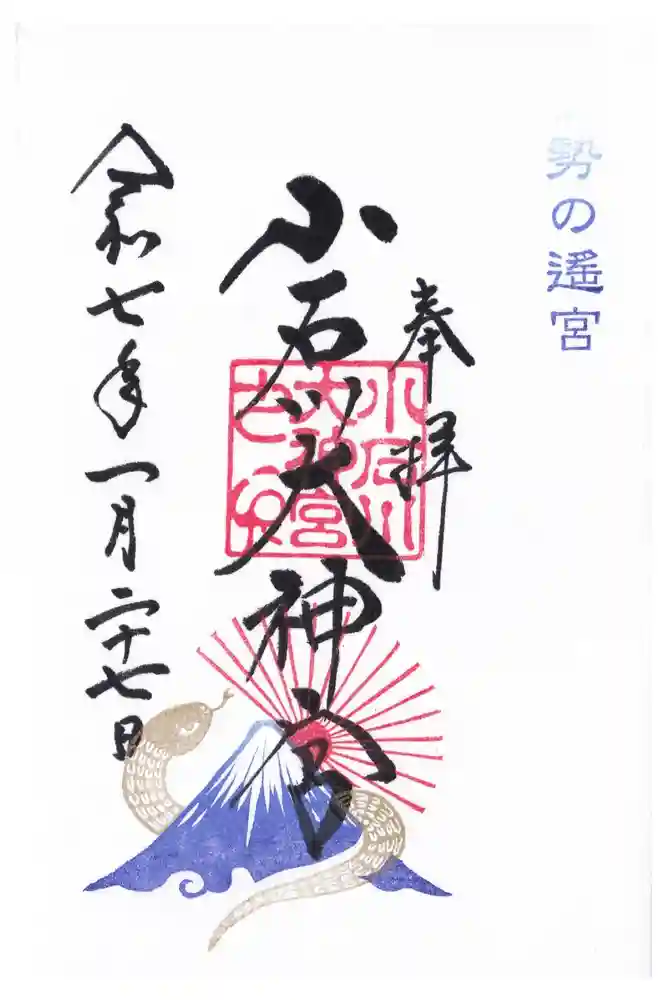 勢の遥宮
奉拝
小石川大神宮
小石川
大神宮
之印
令和七年一月二十七日